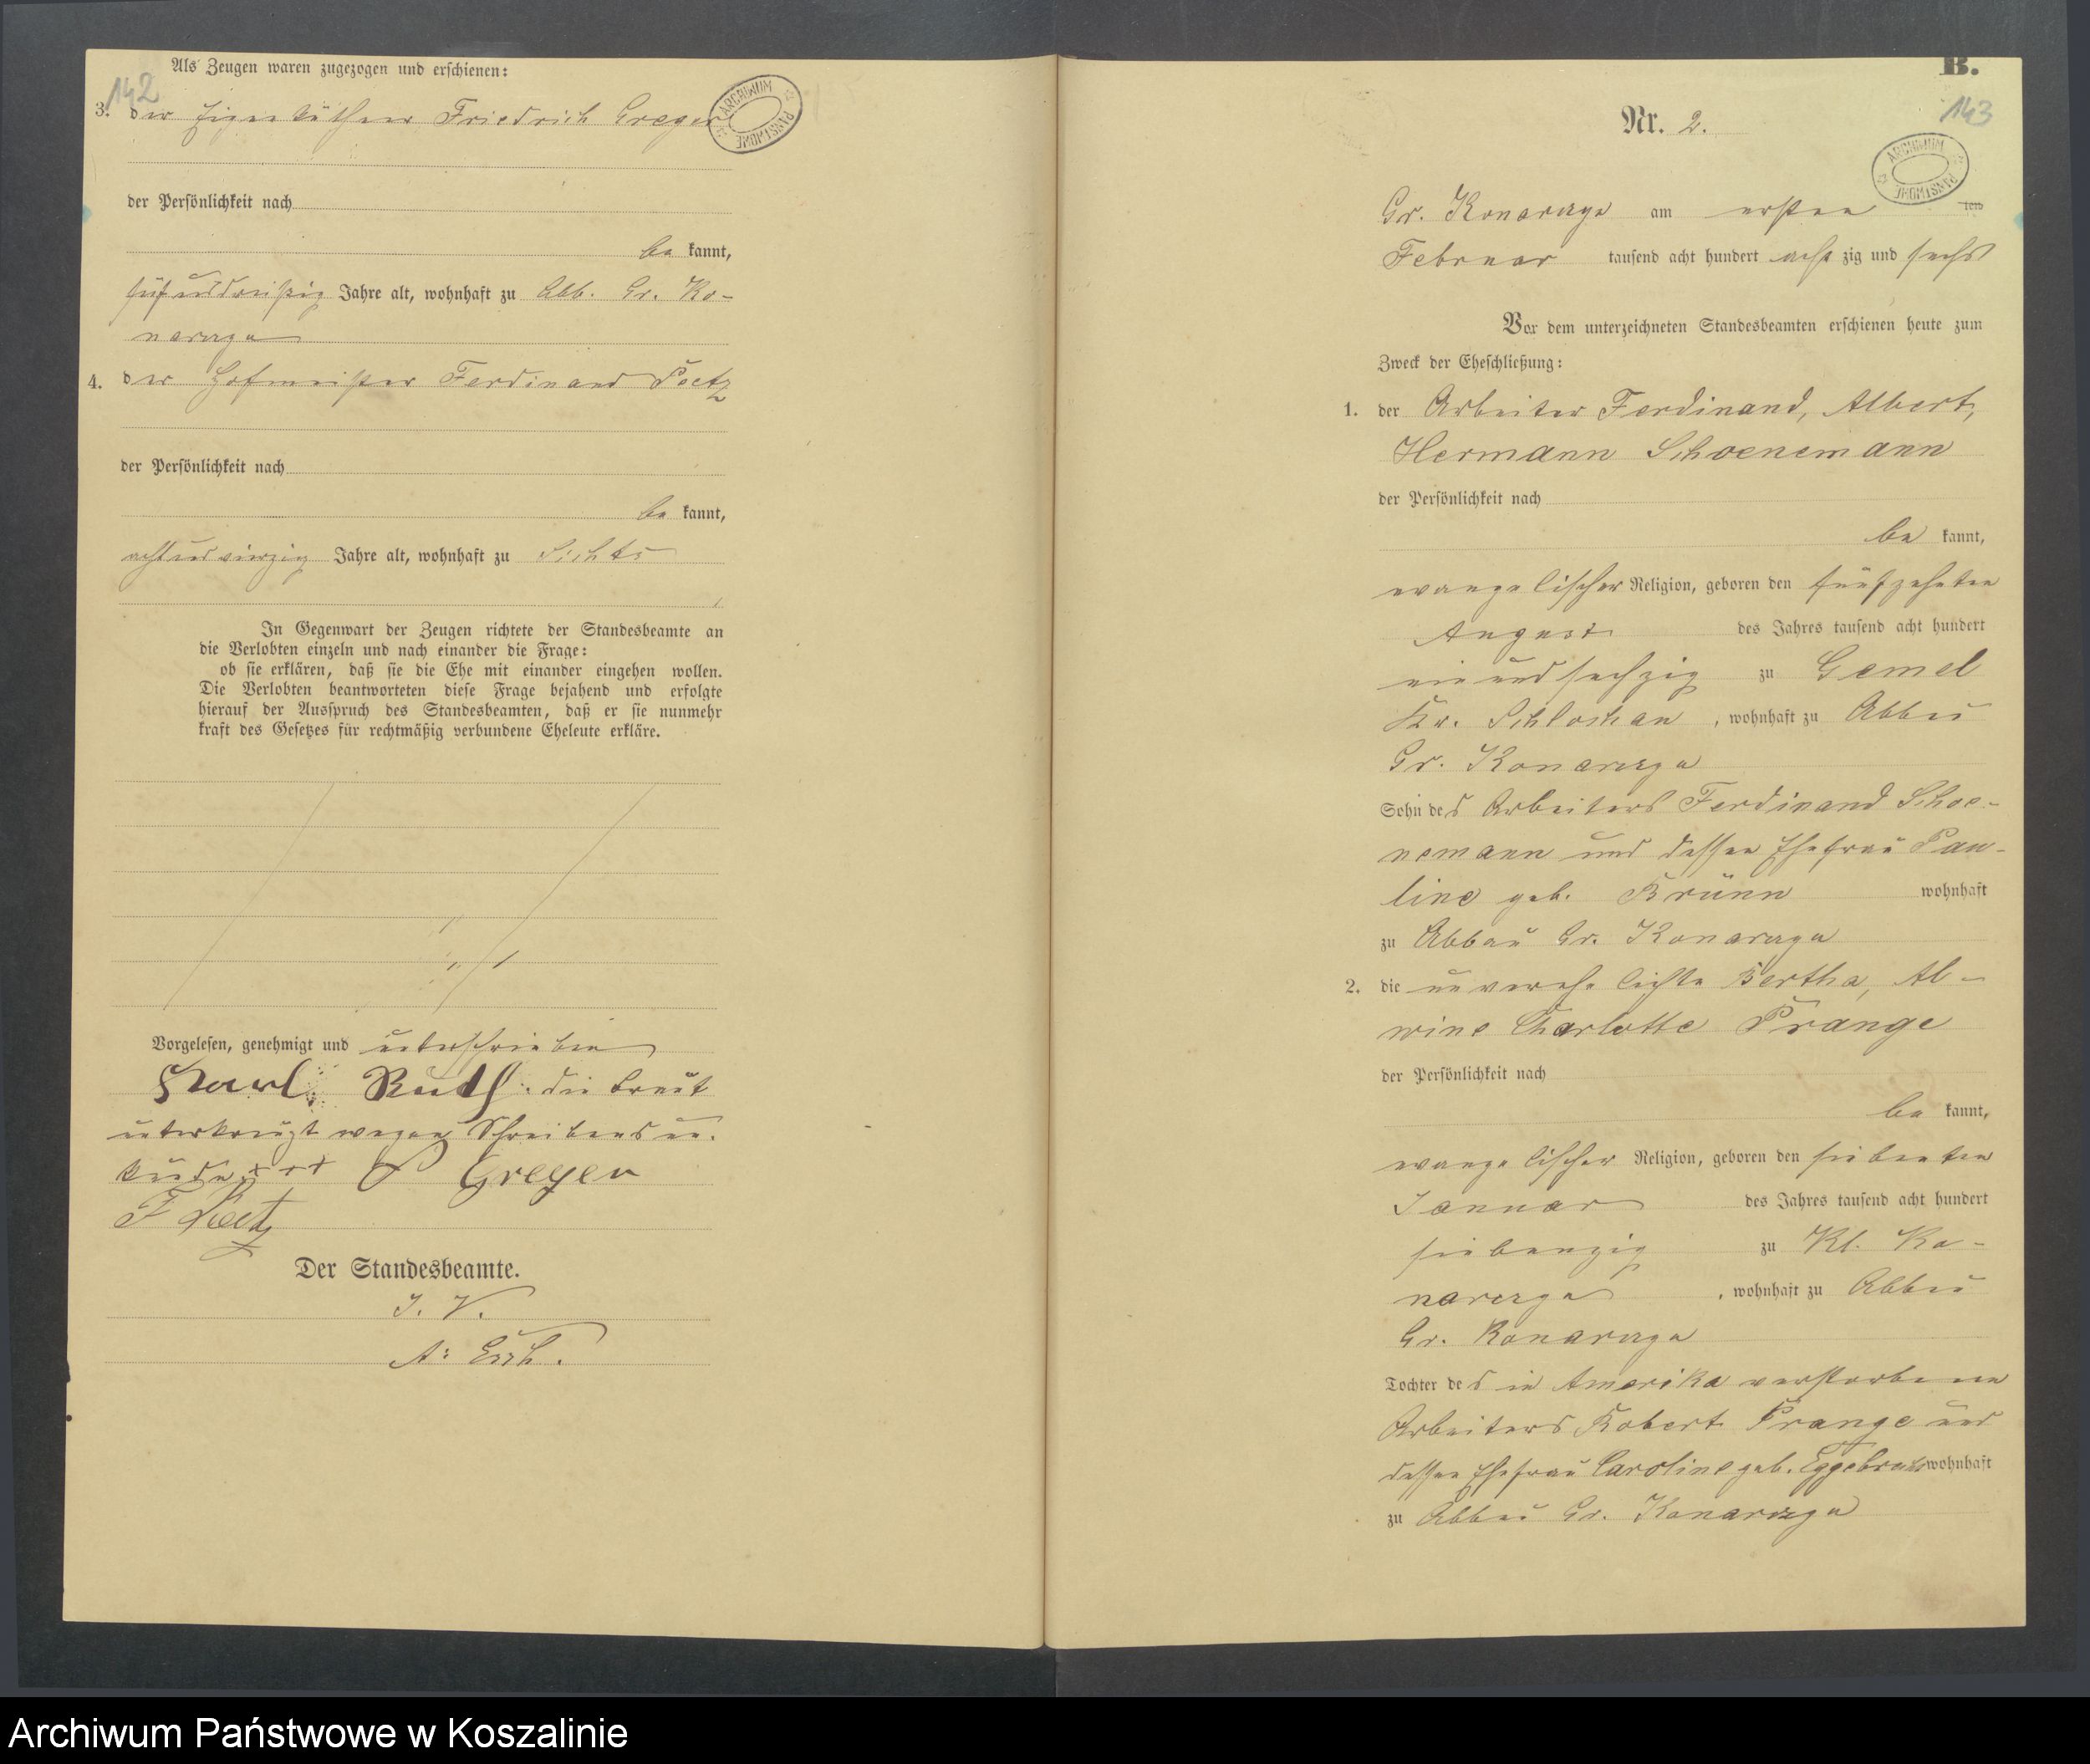 Als Zeugen waren zugezogen und erschienen:
142
3. der Eigenkäthner Friedrich Greger
ARCHIWUM PAŃSTWOWE
der Persönlichkeit nach
be kannt,
fünfunddreißig Jahre alt, wohnhaft zu Abb. Gr. Ko-
narczyn
4. der Hofmeister Ferdinand Poetz
der Persönlichkeit nach
be kannt,
achtundvierzig Jahre alt, wohnhaft zu Sichts
In Gegenwart der Zeugen richtete der Standesbeamte an
die Verlobten einzeln und nach einander die Frage:
ob sie erklären, daß sie die Ehe mit einander eingehen wollen.
Die Verlobten beantworteten diese Frage bejahend und erfolgte
hierauf der Ausspruch des Standesbeamten, daß er sie nunmehr
kraft des Gesetzes für rechtmäßig verbundene Eheleute erkläre.
Vorgelesen, genehmigt und unterschrieben
Karl die Braut
unterkreuzt wegen Schreibensun-
kunde +++ Greger
F Poetz
Der Standesbeamte.
I. V.
A:
B.
143
Nr. 2.
ARCHIWUM PAŃSTWOWE
Gr. Konarczyn am ersten ten
Februar tausend acht hundert acht zig und sechs
Vor dem unterzeichneten Standesbeamten erschienen heute zum
Zweck der Eheschließung:
1. der Arbeiter Ferdinand, Albert,
Hermann Schoenemann
der Persönlichkeit nach
be kannt,
evangelischer Religion, geboren den fünfzehnten
August des Jahres tausend acht hundert
ein und sechzig zu Gemel
Kr. Schlochau, wohnhaft zu Abbau
Gr. Konarczyn
Sohn des Arbeiters Ferdinand Schoe-
nemann und dessen Ehefrau Pau-
line geb. Brünn wohnhaft
zu Abbau Gr. Konarczyn
2. die unverehelichte Bertha, Al-
wine Charlotte Prange
der Persönlichkeit nach
be kannt,
evangelischer Religion, geboren den siebenten
Januar des Jahres tausend acht hundert
siebenzig zu Kl. Ko-
narczyn, wohnhaft zu Abbau
Gr. Konarczyn
Tochter des in Amerika verstorbenen
Arbeiters Robert Prange und
dessen Ehefrau Caroline geb. Eggebrecht wohnhaft
zu Abbau Gr. Konarczyn
Archiwum Państwowe w Koszalinie